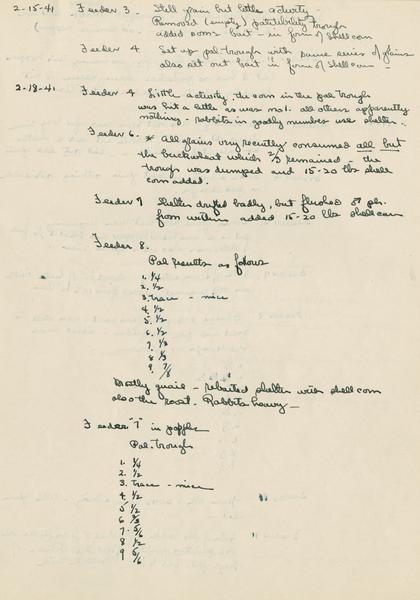 2-15-41 Feeder 3. Still grain but little activity -
Removed (empty) palatibility trough
added some bait - in form of shell corn
Feeder 4 Set up pal-trough with same series of grains
also set out bait in form of shell corn -
2-18-41 Feeder 4 Little activity, the corn in the pal trough
was hit a little as was no 1. all others apparently
nothing - rabbits in goodly number use shelter.
Feeder 6. * All grains very recently consumed all but
the buckwheat which 2/3 remained - the
trough was dumped and 15-20 lbs shell
corn added.
Feeder 7 Shelter drifted badly, but flushed ♂ ph.
from within added 15-20 lbs shell corn
Feeder 8.
Pal results as follows
1. 1/4
2. 1/2
3. trace - mice
4. 1/2
5. 1/2
6. 1/2
7. 1/3
8 1/3
9. 7/8
Mostly quail - rebaited shelter with shell corn
also the roost. Rabbits heavy -
Feeder "7" in
Pal-trough
1. 1/4
2. 1/2
3. trace - mice
4. 1/2
5/ 1/2
6 2/3
7. 5/6
8 1/2
9 5/6